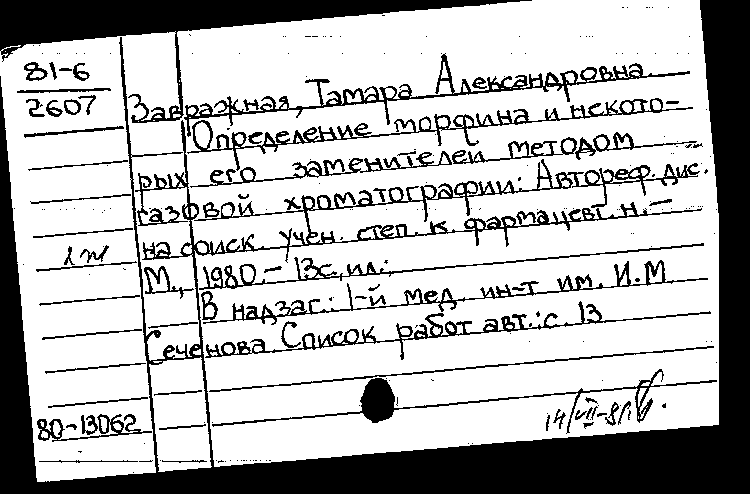 81-6
2607
Завражная, Тамара Александровна.
Определение морфина и некото-
рых его заменителей методом
газовой хроматографии: Автореф. дис.
на соиск. учен. степ. к. фармацевт. н. —
М., 1980. — 13с., ил.;
В надзаг.: 1-й мед. ин-т им. И.М
Сеченова. Список работ авт.: с. 13
80-13062
14/VII-81г.